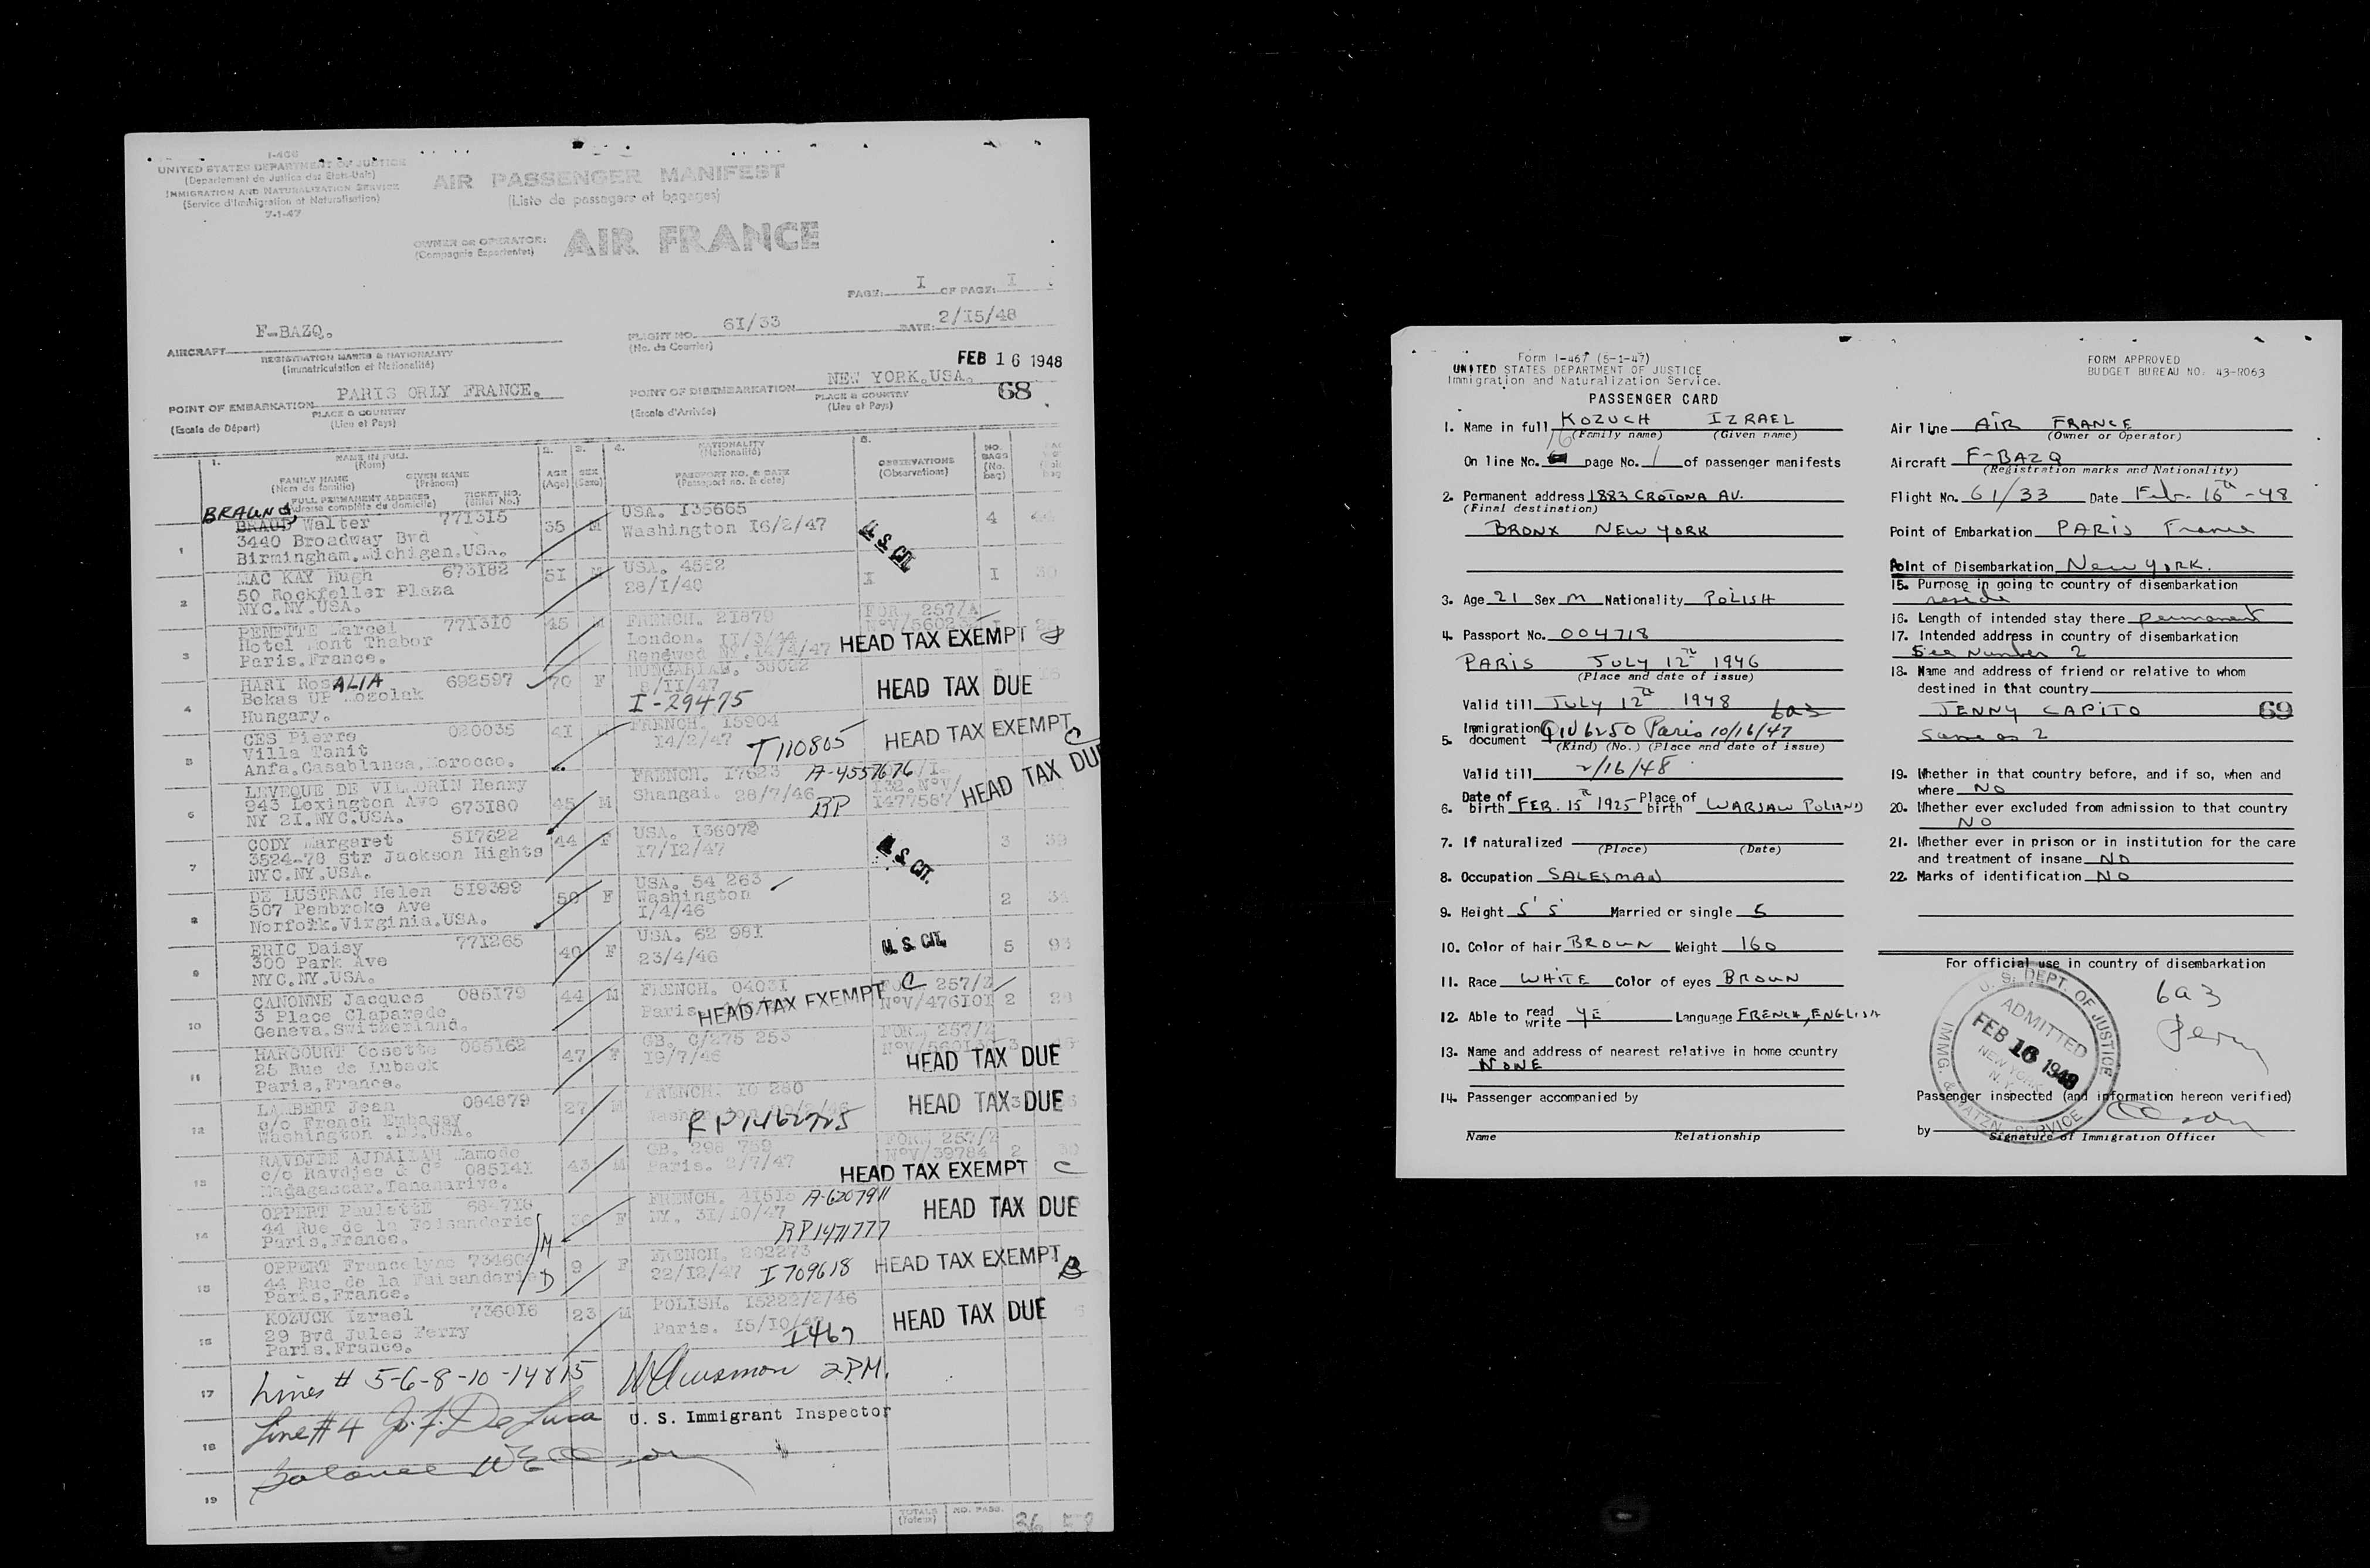 I-466
UNITED STATES DEPARTMENT OF JUSTICE
(Departement de Justice des Etats-Unis)
IMMIGRATION AND NATURALIZATION SERVICE
(Service d'Immigration et Naturalisation)
7-1-47
AIR PASSENGER MANIFEST
(Liste de passagers et bagages)
OWNER OR OPERATOR: AIR FRANCE
(Compagnie Exportentes)
PAGE: I OF PAGE: I
AIRCRAFT F-BAZQ.
REGISTRATION MARKS & NATIONALITY
(Immatriculation et Nationalité)
FLIGHT NO. 6I/33 DATE: 2/I5/48
(No. de Courrier)
FEB 16 1948
POINT OF EMBARKATION PARIS ORLY FRANCE.
PLACE & COUNTRY
(Escale de Départ) (Lieu et Pays)
POINT OF DISEMBARKATION NEW YORK.USA.
PLACE & COUNTRY
(Escale d'Arrivée) (Lieu et Pays)
68
1. NAME IN FULL (Nom) 2. 3. 4. NATIONALITY (Nationalité) 5.
FAMILY NAME (Nom de famille) GIVEN NAME (Prénom) AGE (Age) SEX (Sexe) PASSPORT NO. & DATE (Passeport no. & date) OBSERVATIONS (Observations) NO. BAGS (No. bag)
FULL PERMANENT ADDRESS (Adresse complète du domicile) TICKET NO. (Billet No.)
BRAUND
1 BRAUD Walter 77I3I5 35 M USA. I35665 4 44
3440 Broadway Bvd Washington I6/2/47 U.S. CIT.
Birmingham.Michigan.USA.
2 MAC KAY Hugh 673I82 5I M USA. 4582 I I 30
50 Rockfeller Plaza 28/I/48
NYC.NY.USA.
3 PENETTE Marcel 77I3I0 45 M FRENCH. 2I879 FOR. 257/A
Hotel Mont Thabor London. II/3/44
Paris.France. Renewed NY. I4/4/47 HEAD TAX EXEMPT
4 HART RosALIA 692597 70 F HUNGARIAN. 38092
Bekas UP Mozolak 8/II/47 HEAD TAX DUE
Hungary. I-29475
5 CES Pierre 020035 4I M FRENCH. I5904
Villa Tanit I4/2/47 T110805 HEAD TAX EXEMPT C
Anfa.Casablanca.Morocco.
6 LEVEQUE DE VILMORIN Henry 45 M FRENCH. I7623 A-4557676 I
943 Lexington Ave 673I80 Shangai. 28/7/46 I32.N°V/
NY 2I.NYC.USA. RP I477567 HEAD TAX DUE
7 CODY Margaret 5I7622 44 F USA. I36078 3 39
3524-78 Str Jackson Hights I7/I2/47 U.S. CIT.
NYC.NY.USA.
8 DE LUSTRAC Helen 5I9399 50 F USA. 54 263 2 34
507 Pembroke Ave Washington
Norfolk.Virginia.USA. I/4/46
9 ERIC Daisy 77I265 40 F USA. 62 98I U.S. CIT. 5
300 Park Ave 23/4/46
NYC.NY.USA.
10 CANONNE Jacques 085I79 44 M FRENCH. 0403I C 257/2
3 Place Claparede Paris. HEAD TAX EXEMPT N°V/476I0I 2 28
Geneva.Switzerland.
11 HARCOURT Cosette 085I62 47 F GB. C/275 253 FORM 257/2
25 Rue de Lubeck I9/7/46 HEAD TAX DUE
Paris.France.
12 LAMBERT Jean 084879 27 M FRENCH. I0 280
c/o French Embassy HEAD TAX DUE
Washington .DC.USA. RP1462725
13 RAVDJEE AJDAILAH Mamode 43 M GB. 298 759 FORM 257/2
c/o Ravdjee & C° 085I4I Paris. 2/7/47 N°V/39784 2 30
Madagascar.Tananarive. HEAD TAX EXEMPT C
14 OPPERT PauletE 6847I6 F FRENCH. 4I5I5 A-6207911
44 Rue de la Faisanderie NY. 3I/I0/47 HEAD TAX DUE
Paris.France. M RP1471777
15 OPPERT Francelyne 734604 9 F FRENCH. 202273
44 Rue de la Faisanderie D 22/I2/47 I709618 HEAD TAX EXEMPT B
Paris.France.
16 KOZUCK Izrael 7360I6 23 M POLISH. I5222/2/46
29 Bvd Jules Ferry Paris. I5/I0/47 HEAD TAX DUE
Paris.France. I467
17 Lines # 5-6-8-10-14&15 2PM.
18 Line # 4 J. F. DeLuca U. S. Immigrant Inspector
Balance
19
TOTALS (Totaux) NO. PASS. 36
Form I-467 (5-1-47)
UNITED STATES DEPARTMENT OF JUSTICE
Immigration and Naturalization Service.
PASSENGER CARD
FORM APPROVED
BUDGET BUREAU NO. 43-R063
1. Name in full KOZUCH IZRAEL
(Family name) (Given name)
On line No. 16 page No. 1 of passenger manifests
2. Permanent address 1883 CROTONA AV.
(Final destination)
BRONX NEW YORK
3. Age 21 Sex M Nationality POLISH
4. Passport No. 004718
PARIS JULY 12th 1946
(Place and date of issue)
Valid till JULY 12th 1948 6a3
5. Immigration document QIV 6250 Paris 10/16/47
(Kind) (No.) (Place and date of issue)
Valid till 2/16/48
6. Date of birth FEB. 15th 1925 Place of birth WARSAW POLAND
7. If naturalized
(Place) (Date)
8. Occupation SALESMAN
9. Height 5'5 Married or single S
10. Color of hair BROWN Weight 160
11. Race WHITE Color of eyes BROWN
12. Able to read write YE Language FRENCH, ENGLISH
13. Name and address of nearest relative in home country
NONE
14. Passenger accompanied by
Name Relationship
Air line AIR FRANCE
(Owner or Operator)
Aircraft F-BAZQ
(Registration marks and Nationality)
Flight No. 61/33 Date Feb. 16th -48
Point of Embarkation PARIS France
Point of Disembarkation New YORK.
15. Purpose in going to country of disembarkation
reside
16. Length of intended stay there permanent
17. Intended address in country of disembarkation
See Number 2
18. Name and address of friend or relative to whom
destined in that country
JENNY CAPITO 69
Same as 2
19. Whether in that country before, and if so, when and
where NO
20. Whether ever excluded from admission to that country
NO
21. Whether ever in prison or in institution for the care
and treatment of insane NO
22. Marks of identification NO
For official use in country of disembarkation
U. S. DEPT. OF JUSTICE
ADMITTED
FEB 16 1948
NEW YORK, N.Y.
IMMG. & NATZN. SERVICE
6a3
Perm
Passenger inspected (and information hereon verified)
by
Signature of Immigration Officer